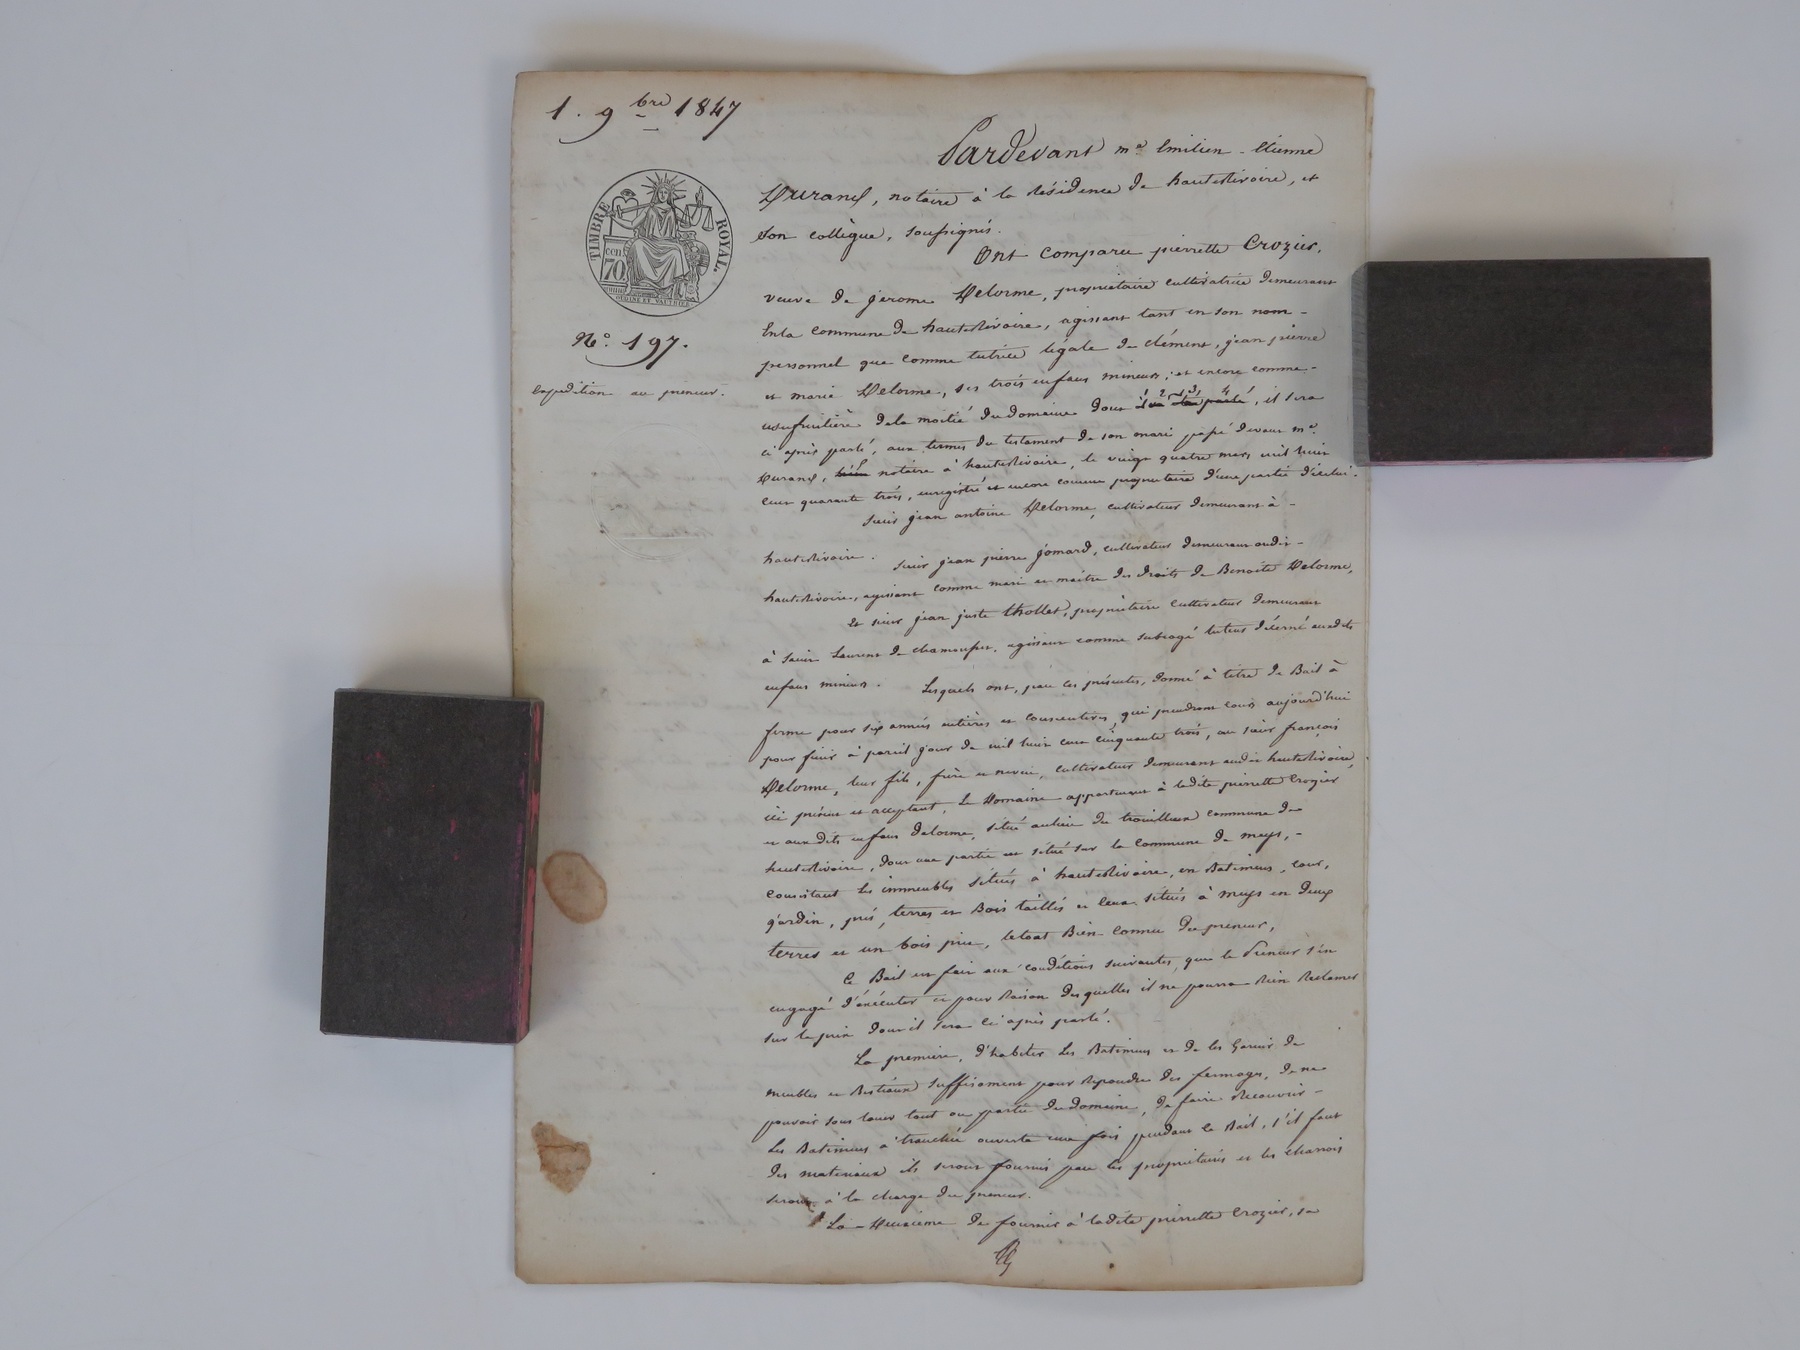 1. 9bre 1847
TIMBRE ROYAL.
cen
70
N° 197.
Expedition au preneur.
Pardevant me Emilien - Etienne
Durand, notaire à la résidence de hauterivoire, et
son collègue, soussignés.
Ont comparu pierrette Crozier,
veuve de jerome Delorme, propriétaire cultivatrice demeurant
En la commune de hauterivoire, agissant tant en son nom -
personnel que comme tutrice légale de clément, jean pierre
et marie Delorme, ses trois enfans mineurs; et encore comme -
usufruitière dela moitié du domaine dont il va être parlé, il sera
ci après parlé, aux termes du testament de son mari passé devant me.
Durand, notaire à hauterivoire, le vingt quatre mars mil huit
cent quarante trois, enregistré et encore comme propriétaire d'une partie d'icelui.
sieur jean antoine Delorme, cultivateur demeurant à -
hauterivoire.
sieur jean pierre jomard, cultivateur demeurant audit -
hauterivoire, agissant comme mari et maitre des droits de Benoite Delorme,
Et sieur jean juste thollet, propriétaire cultivateur demeurant
à saint Laurent de chamousset, agissant comme subrogé tuteur décerné auxdits
enfans mineurs.
Lesquels ont, par ces présentes, donné à titre de Bail à
ferme pour six années entières et consecutives, qui prendront cours aujourd'hui
pour finir à pareil jour de mil huit cent cinquante trois, au sieur françois
Delorme, leur fils, frère et neveu, cultivateur demeurant audit hauterivoire,
ici présent et acceptant, Le Domaine appartenant à ladite pierrette Crozier
et aux dits enfans delorme, situé au lieu du trouilleux commune de
hauterivoire, dont une partie est située sur la commune de meys, -
consistant les immeubles situés à hauterivoire, en Batimens, cour,
jardin, prés, terres et Bois taillis et ceux situés à meys en deux
terres et un bois pin, letout Bien connu du preneur,
Ce Bail est fait aux conditions suivantes, que le Preneur s'en
engagé d'exécuter et pour Raison desquelles il ne pourra Rien Reclamer
sur le prix dont il sera ci après parlé.
La première, d'habiter Les Batimens et de les Garnir de
meubles et Bestiaux suffisament pour Repondre des fermages, de ne
pouvoir sous louer tout ou partie du domaine, de faire Recouvrir -
Les Batimens à tranchée ouverte une fois pendant le Bail, s'il faut
des materiaux ils seront fournis par les propriétaires et les charrois
seront à la charge du preneur.
La - Deuxieme de fournir à ladite pierrette Crozier, sa